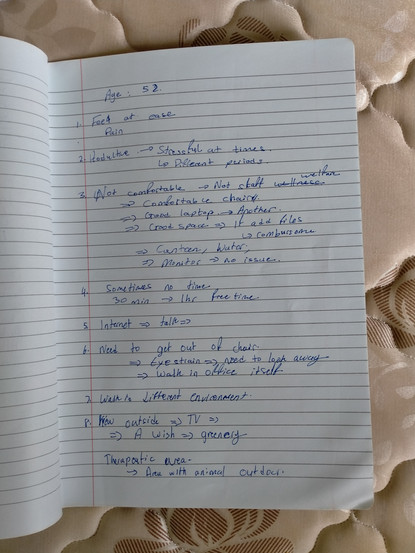 Age : 52.
1. Feel at ease
Pain
2. Productive → Stressful at times.
↳ Different periods
3. Not comfortable → Not staff welfare
⇒ Comfortable chairs.
⇒ Good laptop → Another
⇒ Good space ⇒ If add files
↳ cumbersome
⇒ Canteen, Water,
⇒ Monitor → no issue.
4. Sometimes no time
30 min → 1hr free time.
5. Internet ⇒ talk ⇒
6. Need to get out of chair.
⇒ Eye strain ⇒ need to look away
⇒ Walk in office itself
7. Walk is different environment
8. Now outside ⇒ TV ⇒
⇒ A wish ⇒ greenery
Therapeutic area.
→ Area with animal outdoor.